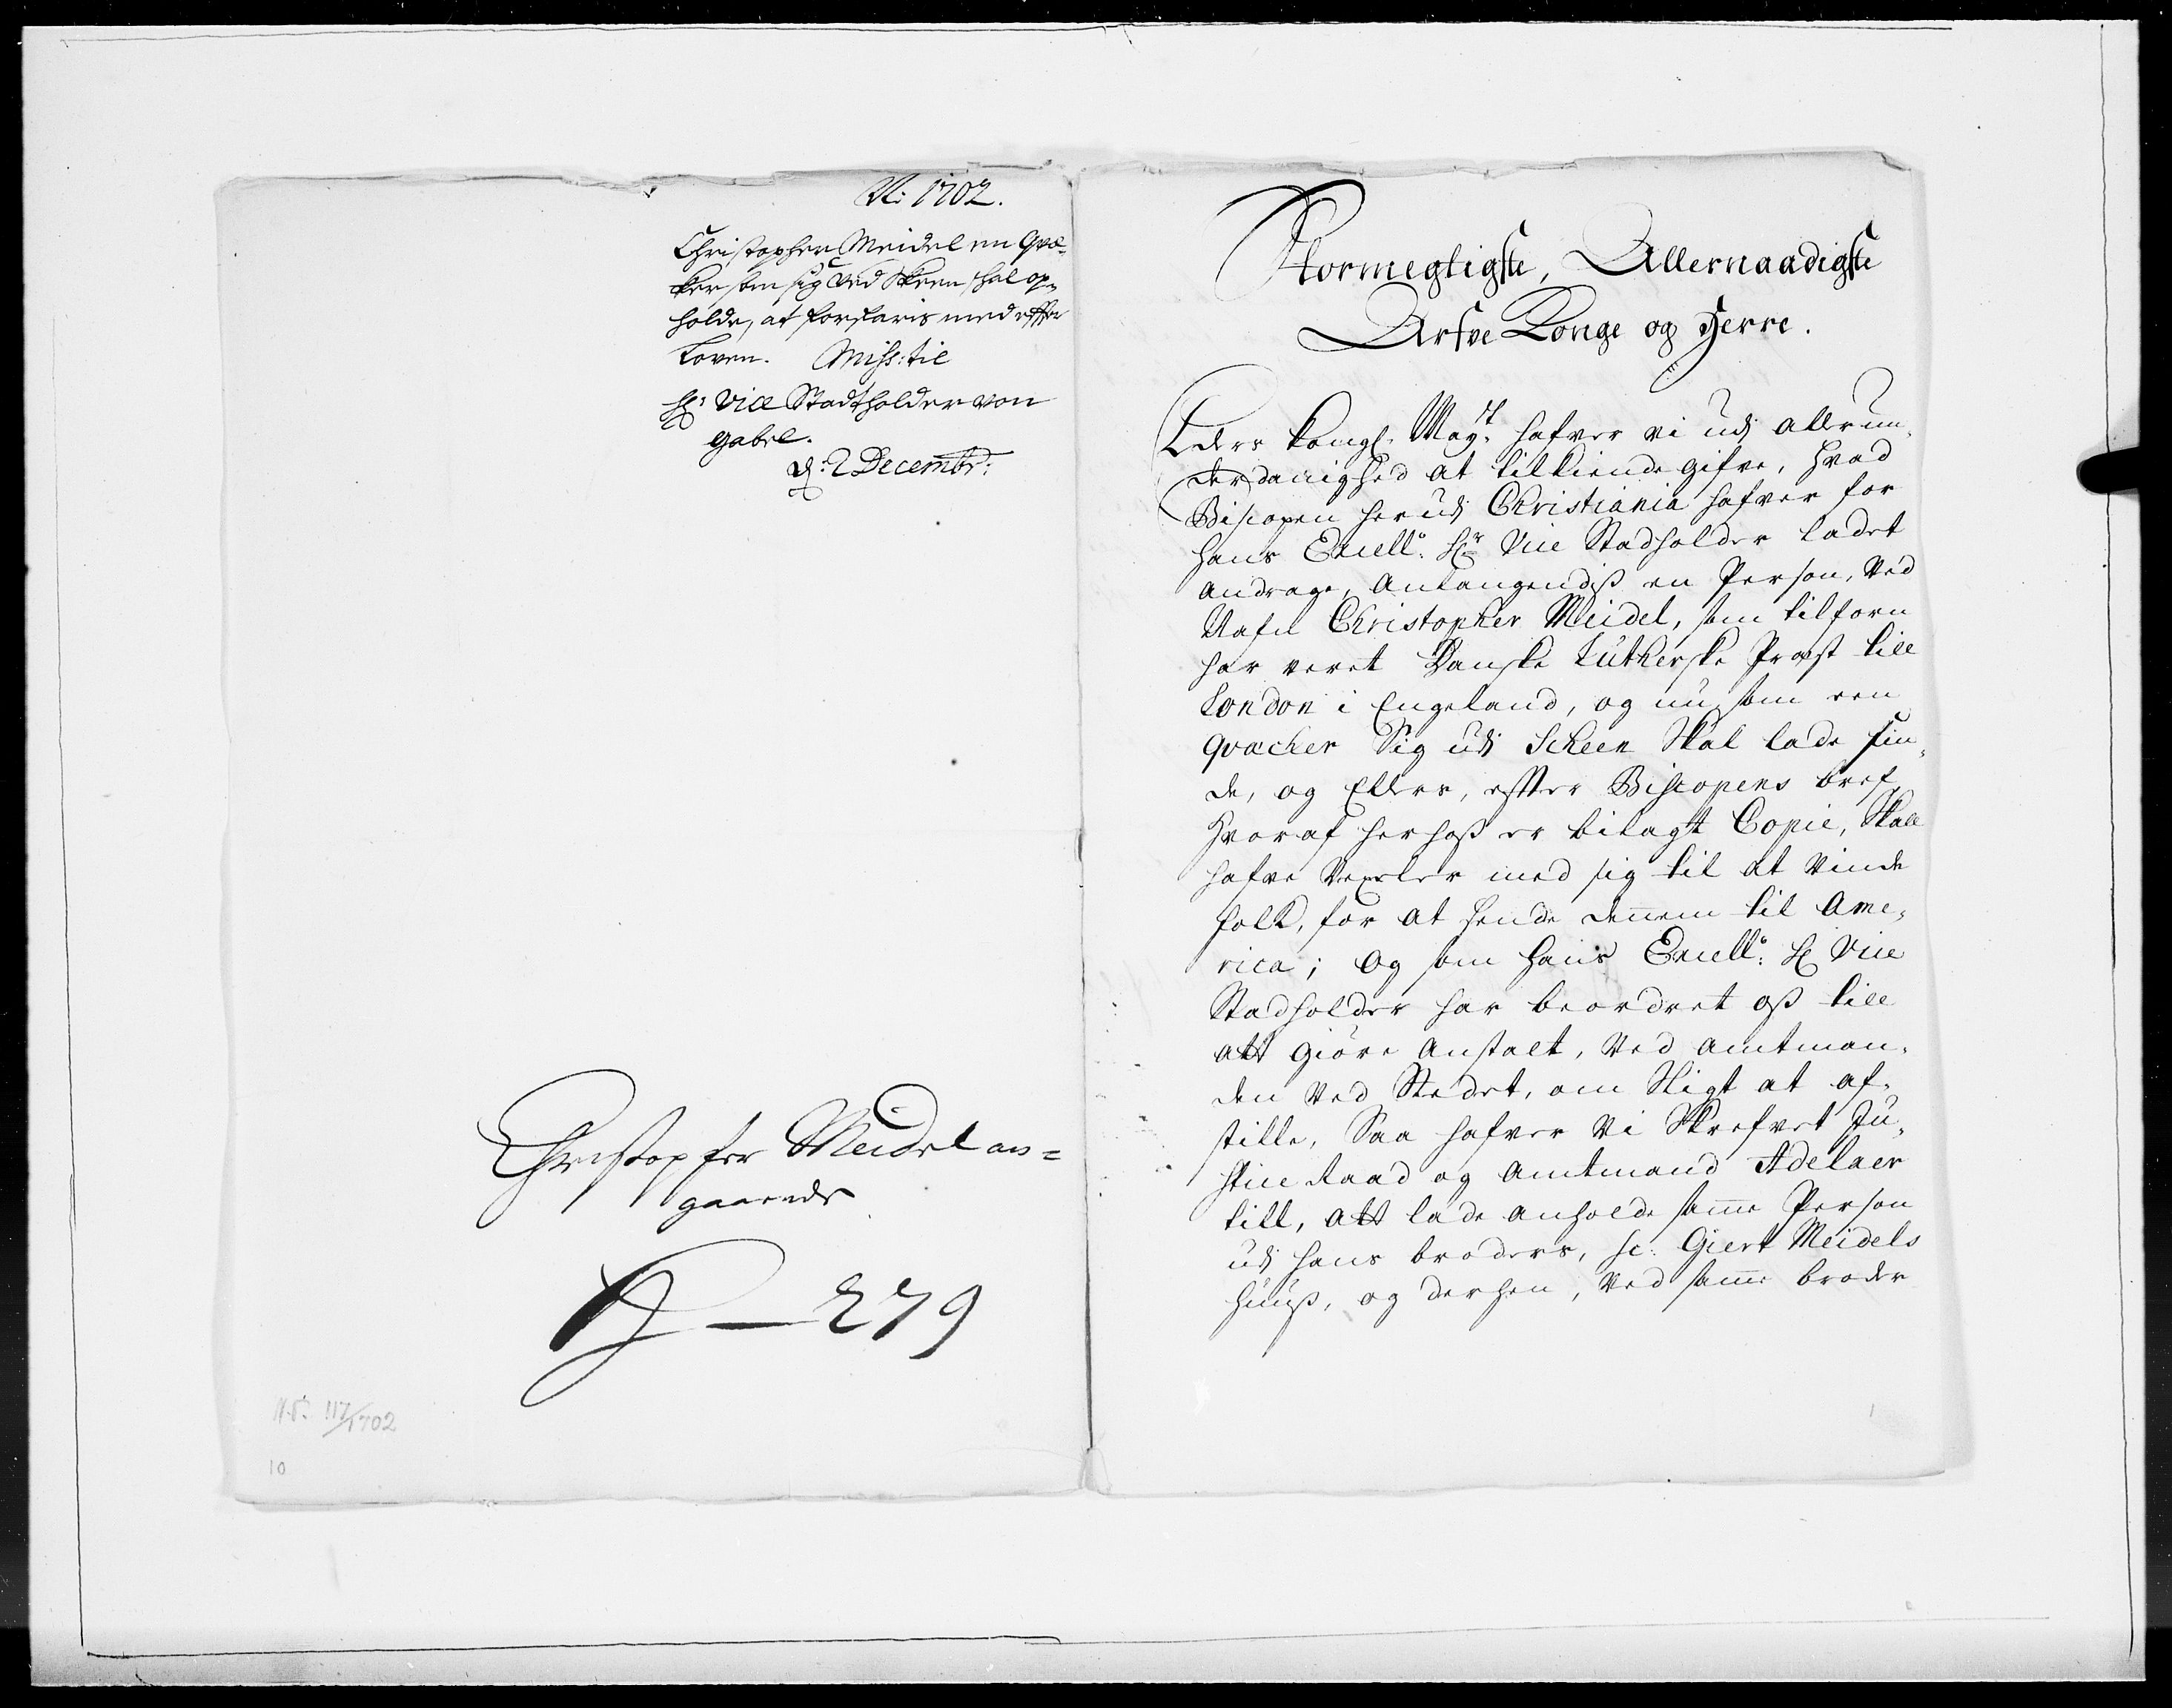 Ao: 1702.
Christopher Meidel en Qvæ-
ker som sig ved Skeen skal op-
holde, at forfaris med effter
Loven. Miss: til
Hr: Vice Stadtholder von
Gabel.
d: 2 Decembr:
Christopher Meidel an=
gaaende
279
117/1702
10
Stormegtigste, Allernaadigste
Arfve Konge og Herre.
Eders Kongl. Mayt. hafver vi udj allerun-
derdanighed at tilkiende gifve, hvad
Biscopen her udj Christiania hafver for
hans Excello: Hr Vice Stadholder ladet
andrage, anlangendis en Person, ved
Nafn Christopher Meidel, som tilforn
har veret Danske Lutherske Præst till
London i Engeland, og nu som een
Qvacker Sig udj Scheen Skal lade fin-
de, og Ellers, effter Biscopens bref,
hvoraf herhoss er bilagt Copie, Skall
hafve Vexeler med sig til at vinde
folk, for at sende dennem til Ame-
rica; og som hans Excello: Hr Vice
Stadholder har beordret oss till
att giøre anstalt, ved amtman-
den ved Stedet, om Sligt at af-
stille, Saa hafver vi Skrefvet Ju-
stice Raad og amtmand Adelaer
till, att lade anholde samme Person
udj hans broders, Sr: Giert Meidels
huuss, og derhen, ved samme broder